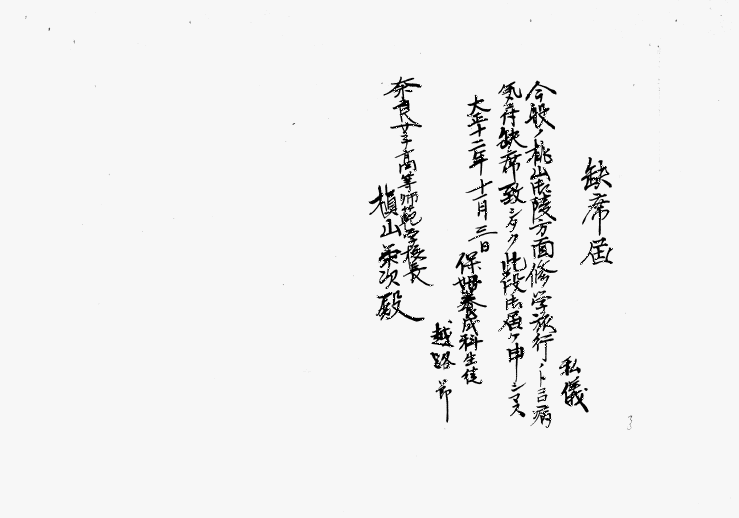 缺席届
私儀
今般ノ桃山御陵方面修学旅行ノトコロ病
気ノ為缺席致シタク此段御届ケ申シマス
大正十二年十一月三日
保姆養成科生徒
越路節
奈良女子高等師範学校長
槇山栄次殿
3